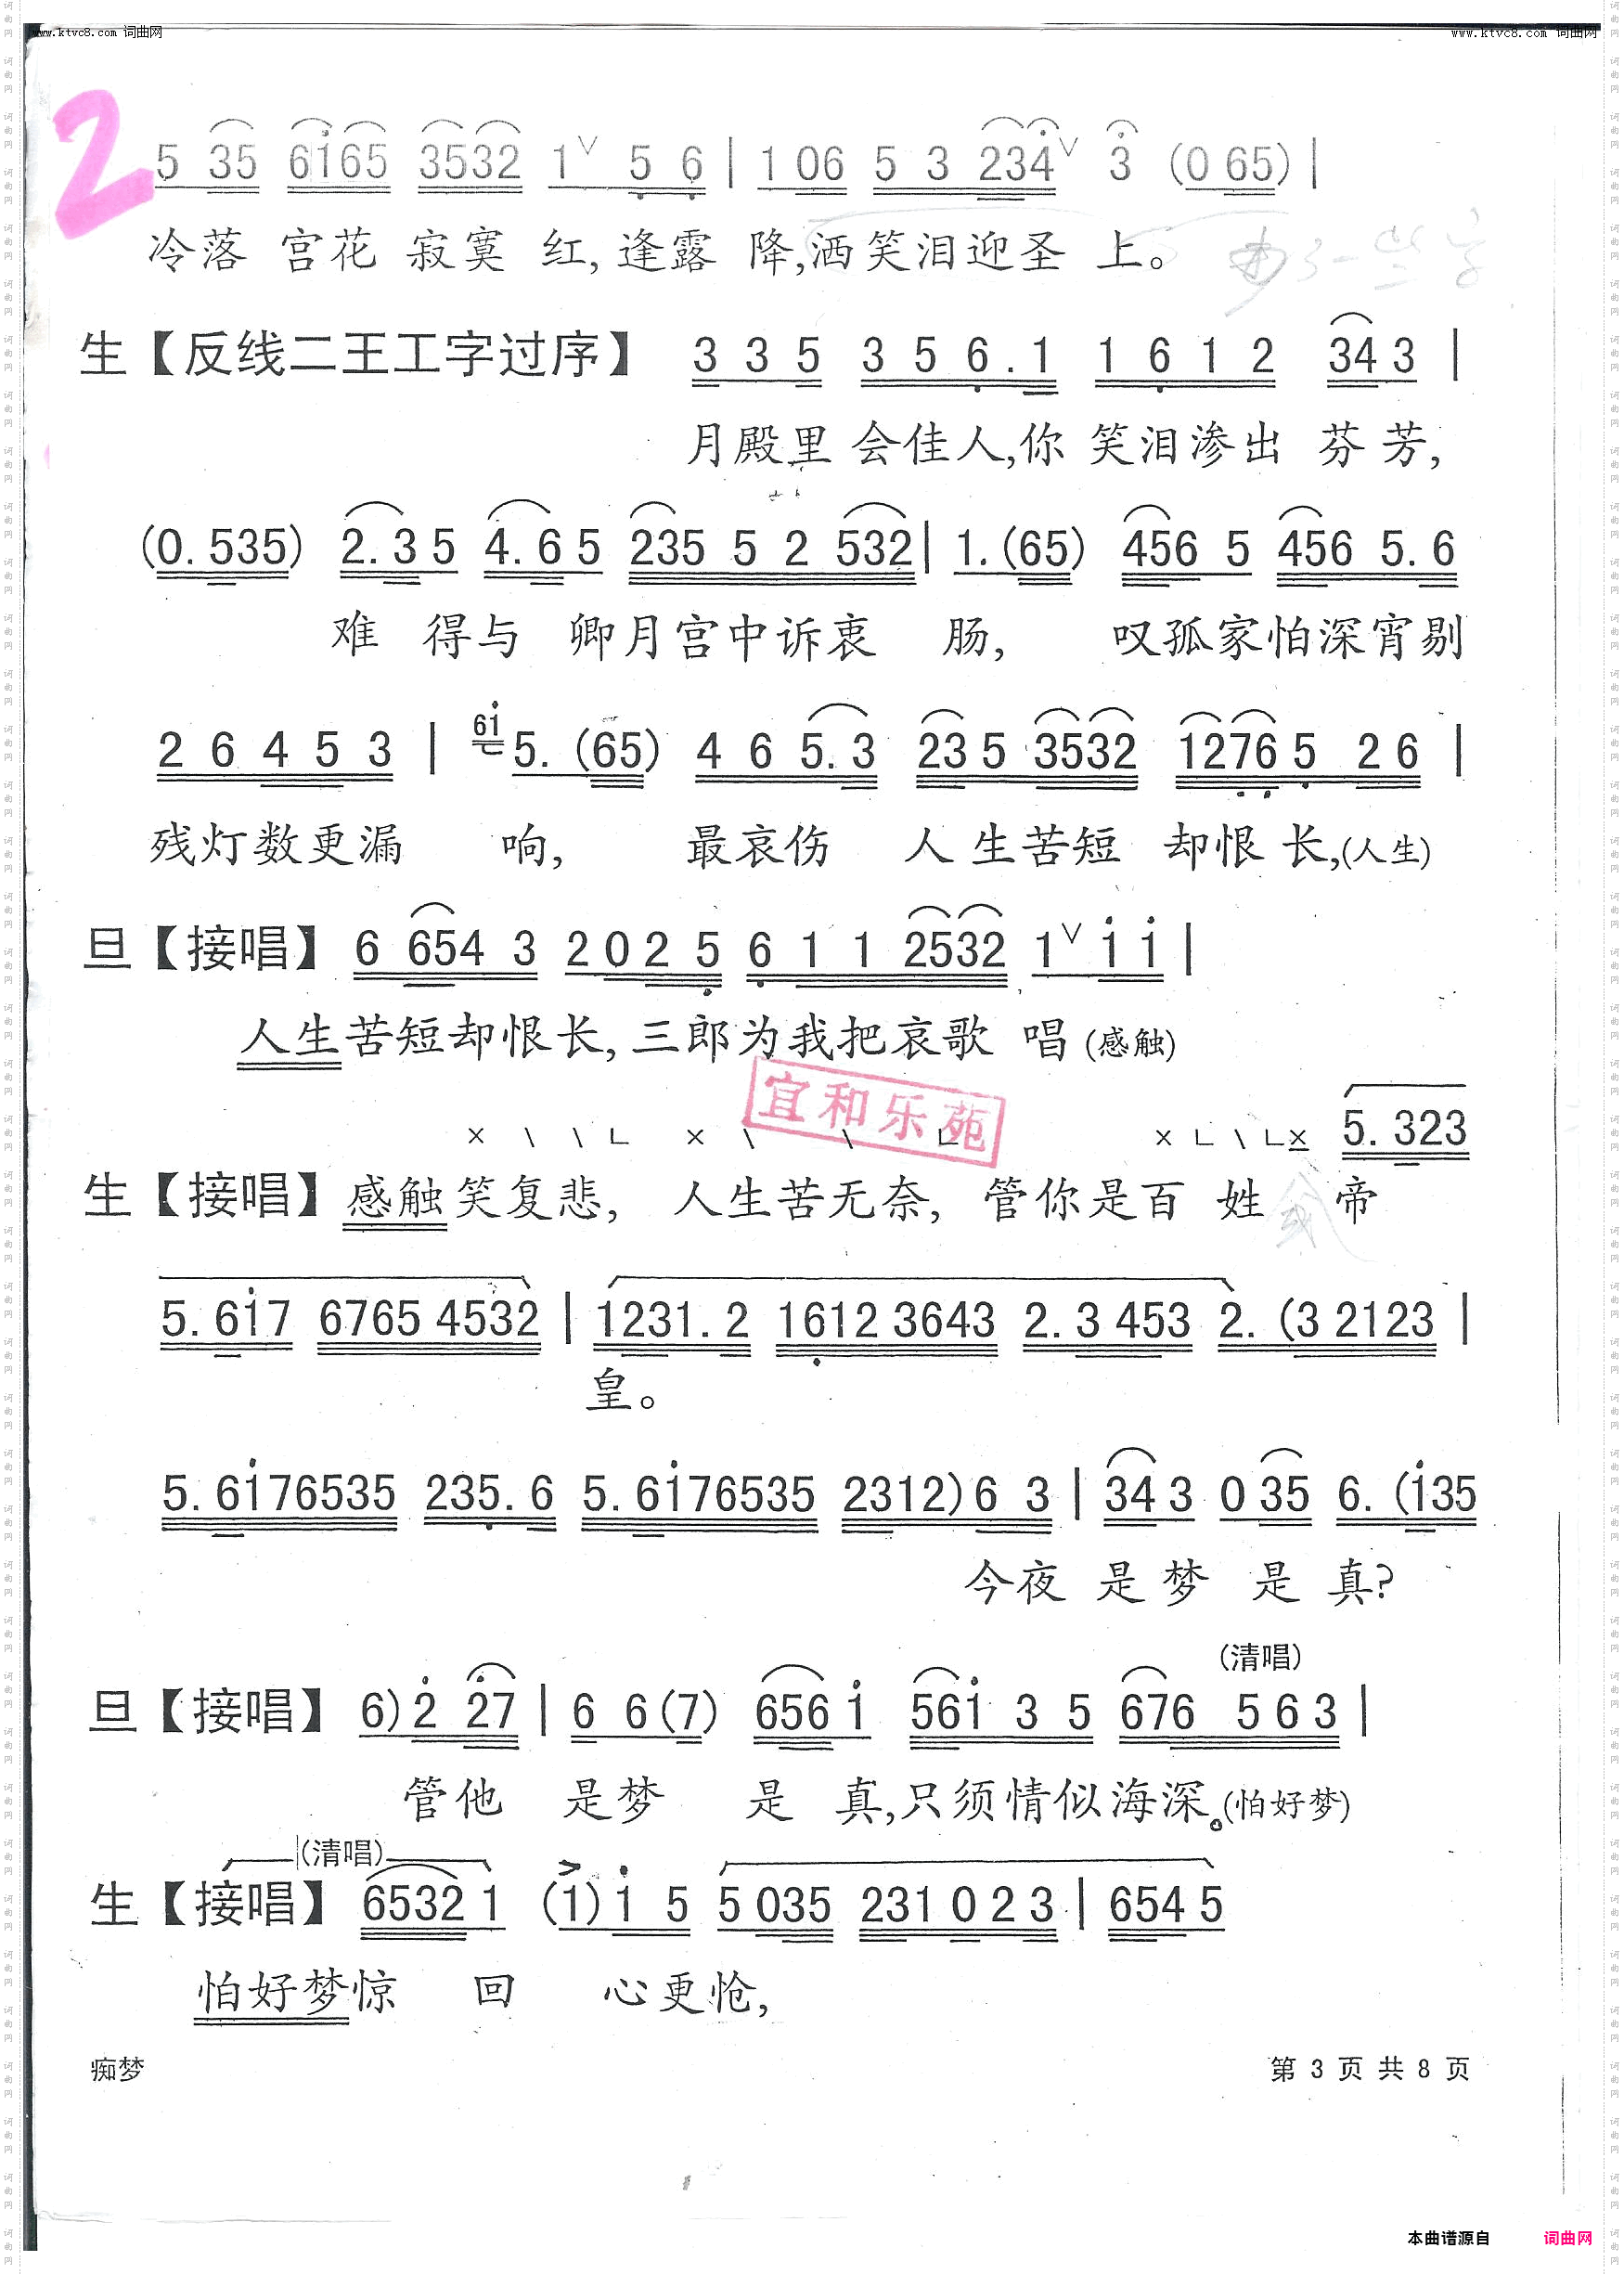 www.ktvc8.com 词曲网 www.ktvc8.com 词曲网
2
5 35 6165 3532 1∨ 5 6 | 1 06 5 3 234∨ 3 (0 65) |
冷落 宫花 寂寞 红, 逢露 降,洒笑泪迎圣 上。
生【反线二王工字过序】 3 3 5 3 5 6.1 1 6 1 2 34 3 |
月殿里 会佳人,你 笑泪渗出 芬芳,
(0.535) 2.3 5 4.6 5 235 5 2 532 | 1.(65) 456 5 456 5.6
难 得与 卿月宫中诉衷 肠, 叹孤家怕深宵剔
2 6 4 5 3 | 61 5.(65) 4 6 5.3 23 5 3532 1276 5 26 |
残灯数更漏 响, 最哀伤 人生苦短 却恨长,(人生)
旦【接唱】 6 654 3 2 0 2 5 6 1 1 2532 1∨ 1 1 |
人生苦短却恨长, 三郎为我把哀歌 唱 (感触)
宜和乐苑
× \ \ ∟ × \ \ ∟ × ∟ \ ∟× 5.323
生【接唱】 感触笑复悲, 人生苦无奈, 管你是百 姓 帝
5.617 6765 4532 | 1231.2 1612 3643 2.3 453 2.(3 2123 |
皇。
5.6176535 235.6 5.6176535 2312) 6 3 | 34 3 0 35 6.(135
今夜 是梦 是 真?
(清唱)
旦【接唱】 6) 2 27 | 6 6(7) 656 1 561 3 5 676 5 6 3 |
管他 是梦 是 真,只须情似海深。(怕好梦)
(清唱)
生【接唱】 6532 1 (1) 1 5 5 035 231 0 2 3 | 654 5
怕好梦惊 回 心更怆,
痴梦 第 3 页 共 8 页
本曲谱源自 词曲网